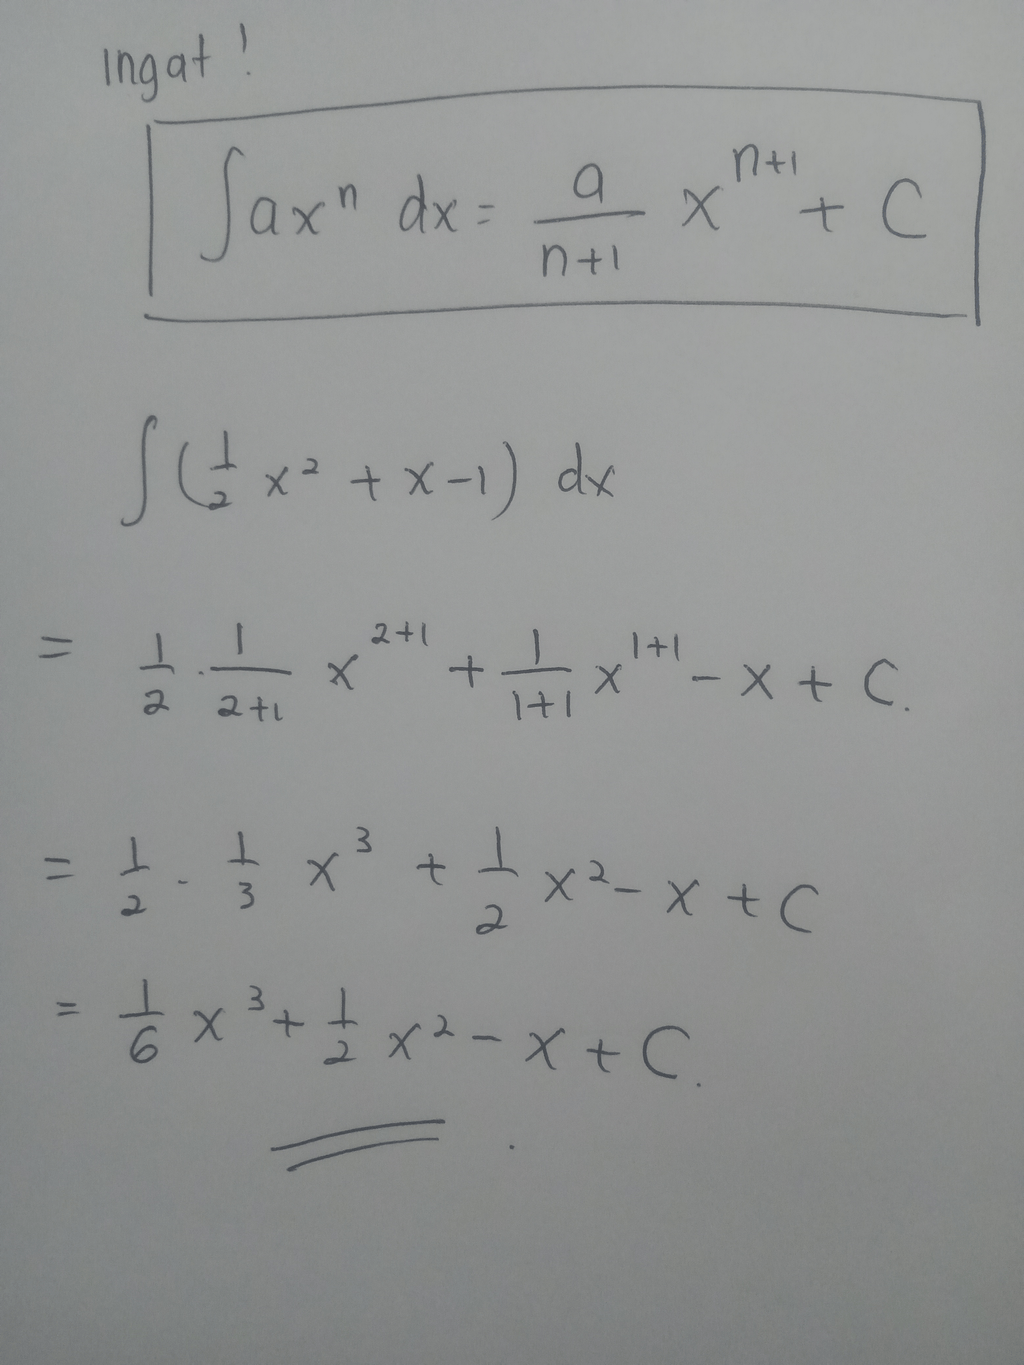 Ingat !
∫ax^n dx = a/(n+1) x^(n+1) + C
∫(1/2 x² + x - 1) dx
= 1/2 . 1/(2+1) x^(2+1) + 1/(1+1) x^(1+1) - x + C.
= 1/2 . 1/3 x³ + 1/2 x² - x + C
= 1/6 x³ + 1/2 x² - x + C.